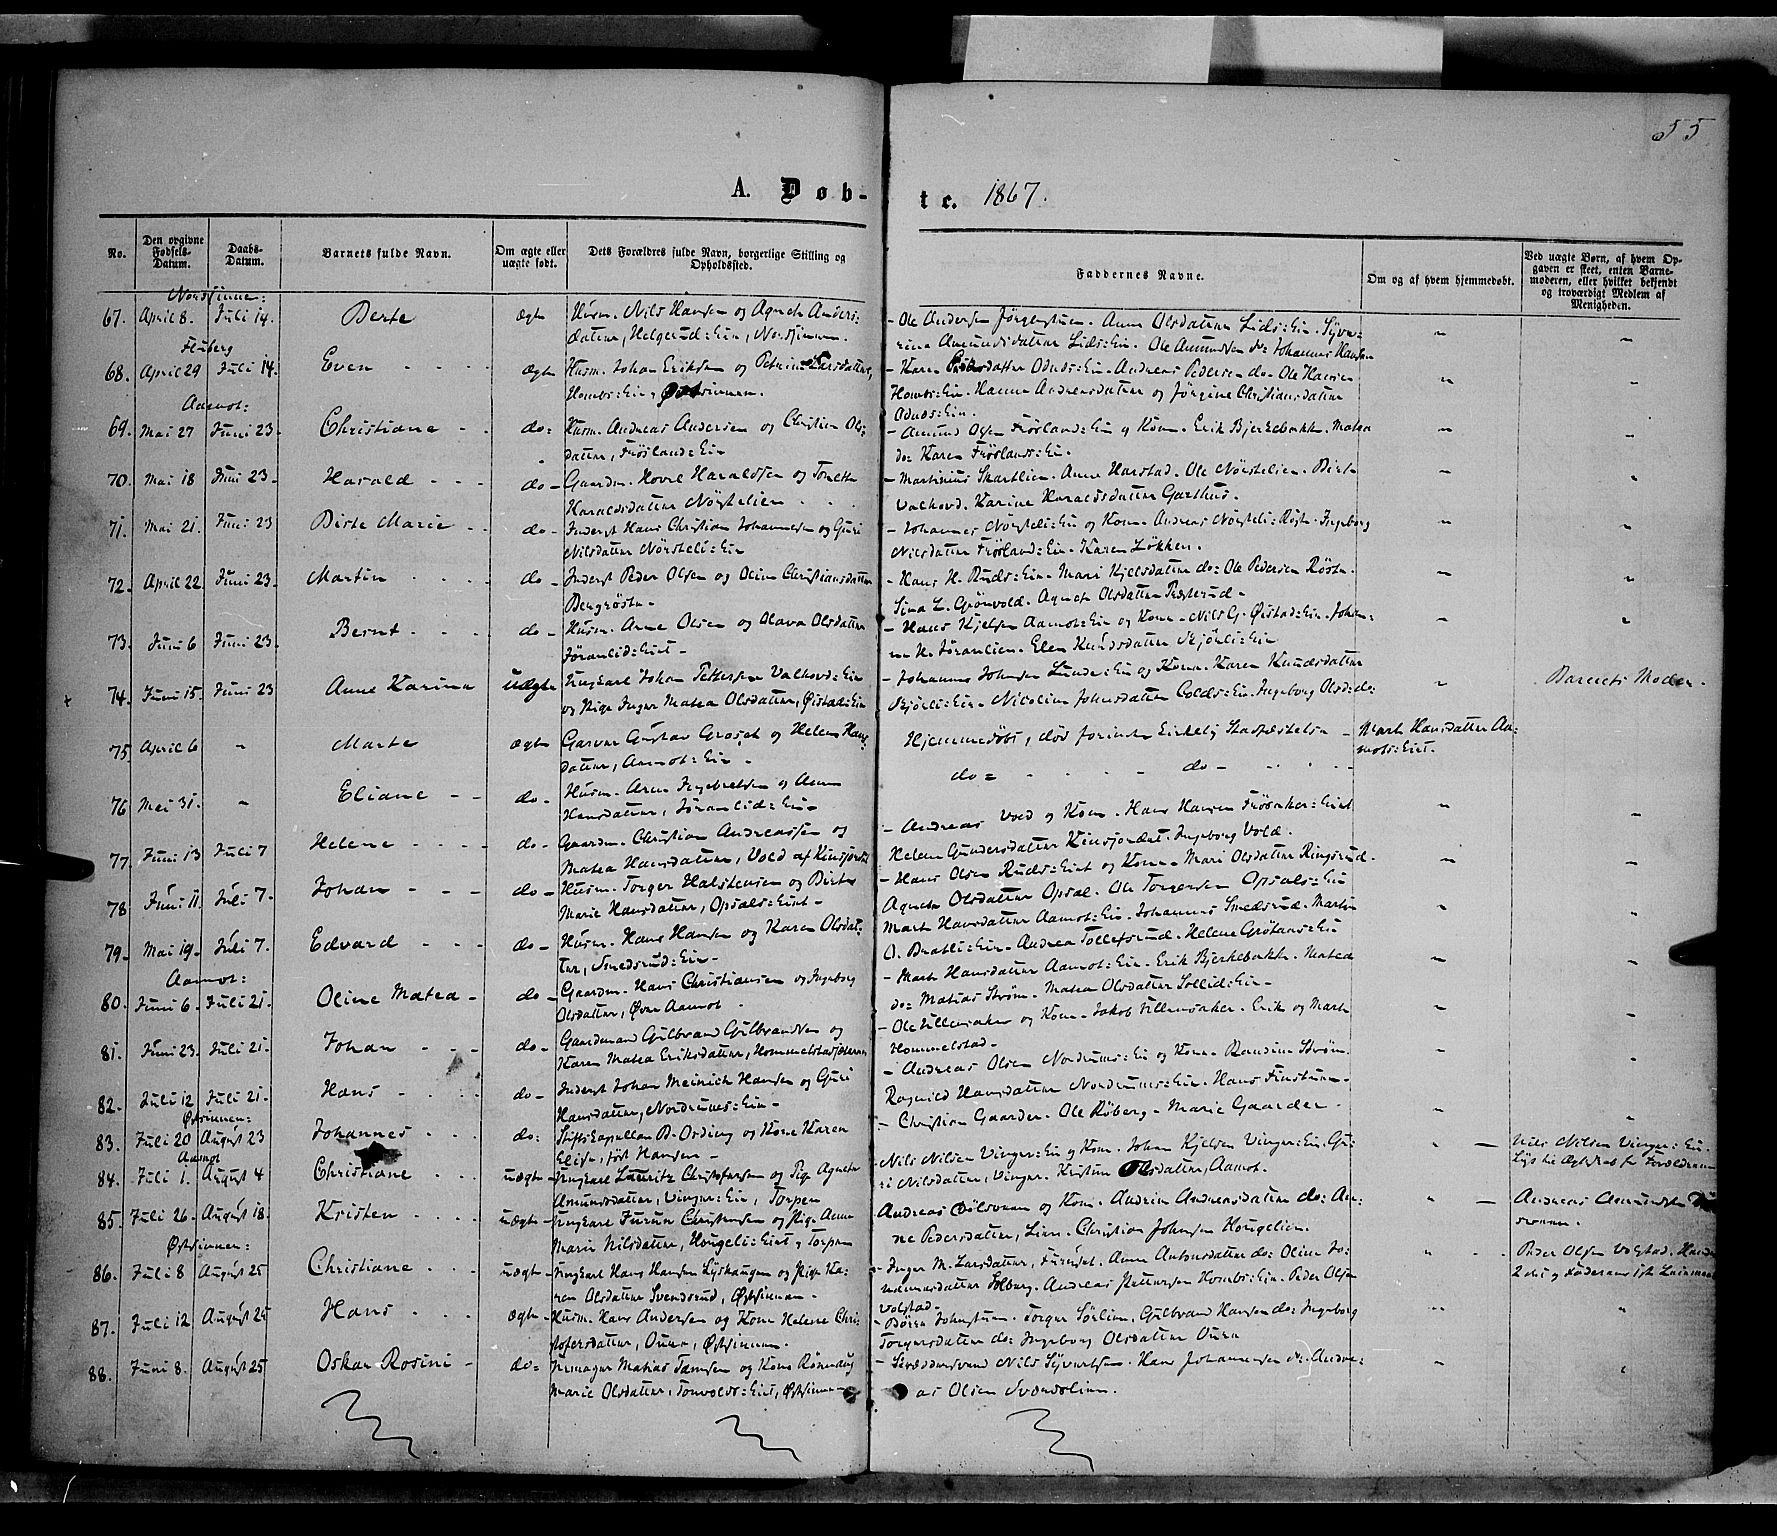 55
A. Døb-
te. 1867.
No.
Den opgivne Fødsels-Datum.
Daabs-Datum.
Barnets fulde Navn.
Om ægte eller uægte født.
Dets Forældres fulde Navn, borgerlige Stilling og Opholdssted.
Faddernes Navne.
Om og af hvem hjemmedøbt.
Ved uægte Børn, af hvem Opgaven er skeet, enten Barnemoderen, eller hvilket bekjendt og troværdigt Medlem af Menigheden.
Nordsinnen:
67. April 8. Juli 14. Berte ægte Husm. Nils Hansen og Agnete Anders:
datter, Helgerud:Ein, Nordsinnen.
- Ole Andersen Jørgenstuen. Anne Olsdatter Lids:Ein.
Amundsdatter Lids:Ein. Ole Amundsen do: Johannes Hansen
Fluberg
68. April 29 Juli 14. Even ægte Husm. Johan Eriksen og Petrine Larsdatter,
Hombs:Ein, Østsinnen.
- Karen Odnds:Ein. Andreas Pedersen do. Ole Hansen
Hombs:Ein. Hanna Andreasdatter og Jørgine Christiansdatter
Odnds:Ein.
Aamot:
69. Mai 27 Juni 23. Christiane do: Husm. Andreas Andersen og Christine Ols:
datter, Frösland:Ein
- Amund Olsen Frösland:Ein og Kone. Erik Bjerkebakke. Matea
do: Karen Fröslands:Ein.
70. Mai 18 Juni 23. Harald do- Gaardm. Hovel Haraldsen og Tonette
Haraldsdatter Nöistelien
- Martinius Skartlien. Anne Harstad. Ole Nöistelien. Berte
Valhovd. Karine Haraldsdatter Garthus.
71. Mai 21. Juni 23 Berte Marie do- Inderst Hans Christian Johannesen og Guri
Nilsdatter Nörsteli:Ein
- Johannes Nöisteli:Ein og Kone. Andreas Nöisteli:Røste. Ingeborg
Nilsdatter Frösland:Ein. Karen Løkken.
72. April 22. Juni 23. Martin do- Inderst Peder Olsen og Oline Christiansdatter
Bergröste-
- Hans H. Ruds:Ein. Mari Kjelsdatter do: Ole Pedersen Röste.
Sina L. Grönvold. Agnete Olsdatter Prestrud-
73. Juni 6 Juni 23. Bernt do- Husm. Arne Olsen og Olava Olsdatter
Jöranlid:Eiet-
- Hans Kjelsen Aamot:Ein og Kone. Nils G. Øistad:Ein. Johan-
ne H. Jöranlien. Elen Knudsdatter Skjöli:Ein
74. Juni 15. Juni 23 Anne Karine uægte Ungkarl Johan Pettersen Valhovd:Ein
og Pige Inger Matea Olsdatter, Øistad:Ein
- Johannes Johnsen Lunde:Ein og Kone. Karen Knudsdatter
Skjöli:Ein. Nicoline Johnsdatter Golds:Ein. Ingeborg Olsd: do-
Barnets Moder.
75. April 6 " Marte ægte Garver Gustav Groset og Helene Hans-
datter, Aamot:Ein-
Hjemmedøbt, død forinden Kirkelig Stadfæstelse -
Marte Hansdatter Aa-
mots:Eiet.
76 Mai 31. " Eliane do- Husm. Arne Ingebretsen og Anne
Hansdatter, Jöranlid:Ein-
do= do-
77. Juni 13 Juli 7 Helene do- Gaardm. Christian Andreassen og
Matea Hansdatter, Vold af Kinsjordet
- Andreas Vold og Kone. Hans Hansen Frösaker:Eiet
Helene Gundersdatter Kinsjordet. Ingeborg Vold.
78 Juni 11. Juli 7. Johan do- Husm. Torger Halstensen og Berte
Marie Hansdatter, Opsals:Eiet-
- Hans Olsen Ruds:Eiet og Kone. Mari Olsdatter Ringsrud.
Agnete Olsdatter Opsal. Ole Torgersen Opsals:Ein
79. Mai 19. Juli 7. Edvard do- Husm. Hans Hansen og Karen Olsdat-
ter, Smedsrud:Ein-
Marte Hansdatter Aamot:Ein. Johannes Smedsrud. Martin
O. Bratli:Ein. Andrea Tollefsrud. Helene Gröthans:Ein
Aamot:
80. Juni 6. Juli 21. Oline Matea do- Gaardm. Hans Christiansen og Ingeborg
Olsdatter, Øvre Aamot.
- Marte Hansdatter Aamot:Ein. Erik Bjerkebakke. Matea
do: Matias Ström. Matea Olsdatter Sollid:Ein-
81. Juni 23. Juli 21. Johan do- Gaardmand Gulbrand Gulbrandsen og
Karen Matea Eriksdatter, Hommelstadsæteren
- Ole Lillensaker og Kone. Jakob Lillensaker. Erik og Marte
Hommelstad-
82. Juli 12 Juli 21. Hans do- Inderst Johan Meinich Hansen og Guri
Hansdatter, Nordrums:Ein-
- Andreas Olsen Nordrums:Ein og Kone. Randine Ström.
Ragnild Hansdatter Nordrums:Ein. Hans Finstuen-
Østsinnen:
83. Juli 20 August 23 Johannes do: Stiftscapellan B. Ording og Kone Karen
Elise, født Hansen-
- Christian Gaarder. Ole Röberg. Marie Gaarder-
Aamot
84. Juli 1. August 4 Christiane uægte- Ungkarl Lauritz Christofersen og Pige Agnete
Amundsdatter, Vinger:Ein, Torpen
Nils Nilsen Vinger:Ein og Kone. Johan Kjelsen Vinger:Ein. Gu-
ri Nilsdatter, Vinger. Kristine Olsdatter, Aamot.
Nils Nilsen Vinger:Ein.
85. Juli 26. August 18. Kristen uægte- Ungkarl Christensen og Pige Anne
Marie Nilsdatter, Hougeli:Eiet, Torpen
Andreas og Kone. Andrine Andreasdatter do: An-
ne Pedersdatter, Lien. Christian Johnsen Hougelien.
Andreas Amundsen
Østsinnen:
86. Juli 8 August 25 Christiane uægte- Ungkarl Hans Hansen Lyshaugen og Pige Ka-
ren Olsdatter Svendsrud, Østsinnen.
- Inger M. Larsdatter, Anne Antonsdatter do: Oline
Solberg. Andreas Pettersen Hombs:Ein. Peder Olsen
Volstad.
Peder Olsen Volstad.
87. Juli 12 August 25 Hans ægte- Husm. Hans Andersen og Kone Helene Chri-
stofersdatter, Ouren, Østsinnen.
- Börre Johnstuen. Torger Sörlien. Gulbrand Hansen do: Ingeborg
Torgersdatter do: Ingeborg Olsdatter Ouren
88. Juni 8. August 25 Oskar Rosini do: Urmager Matias Tomsen og Kone Rönnaug
Marie Olsdatter, Tonvolds:Eiet, Østsinnen-
- Skræddersvend Nils Syvertsen. Hans Johannesen do: Andre-
as Olsen Svendslien.